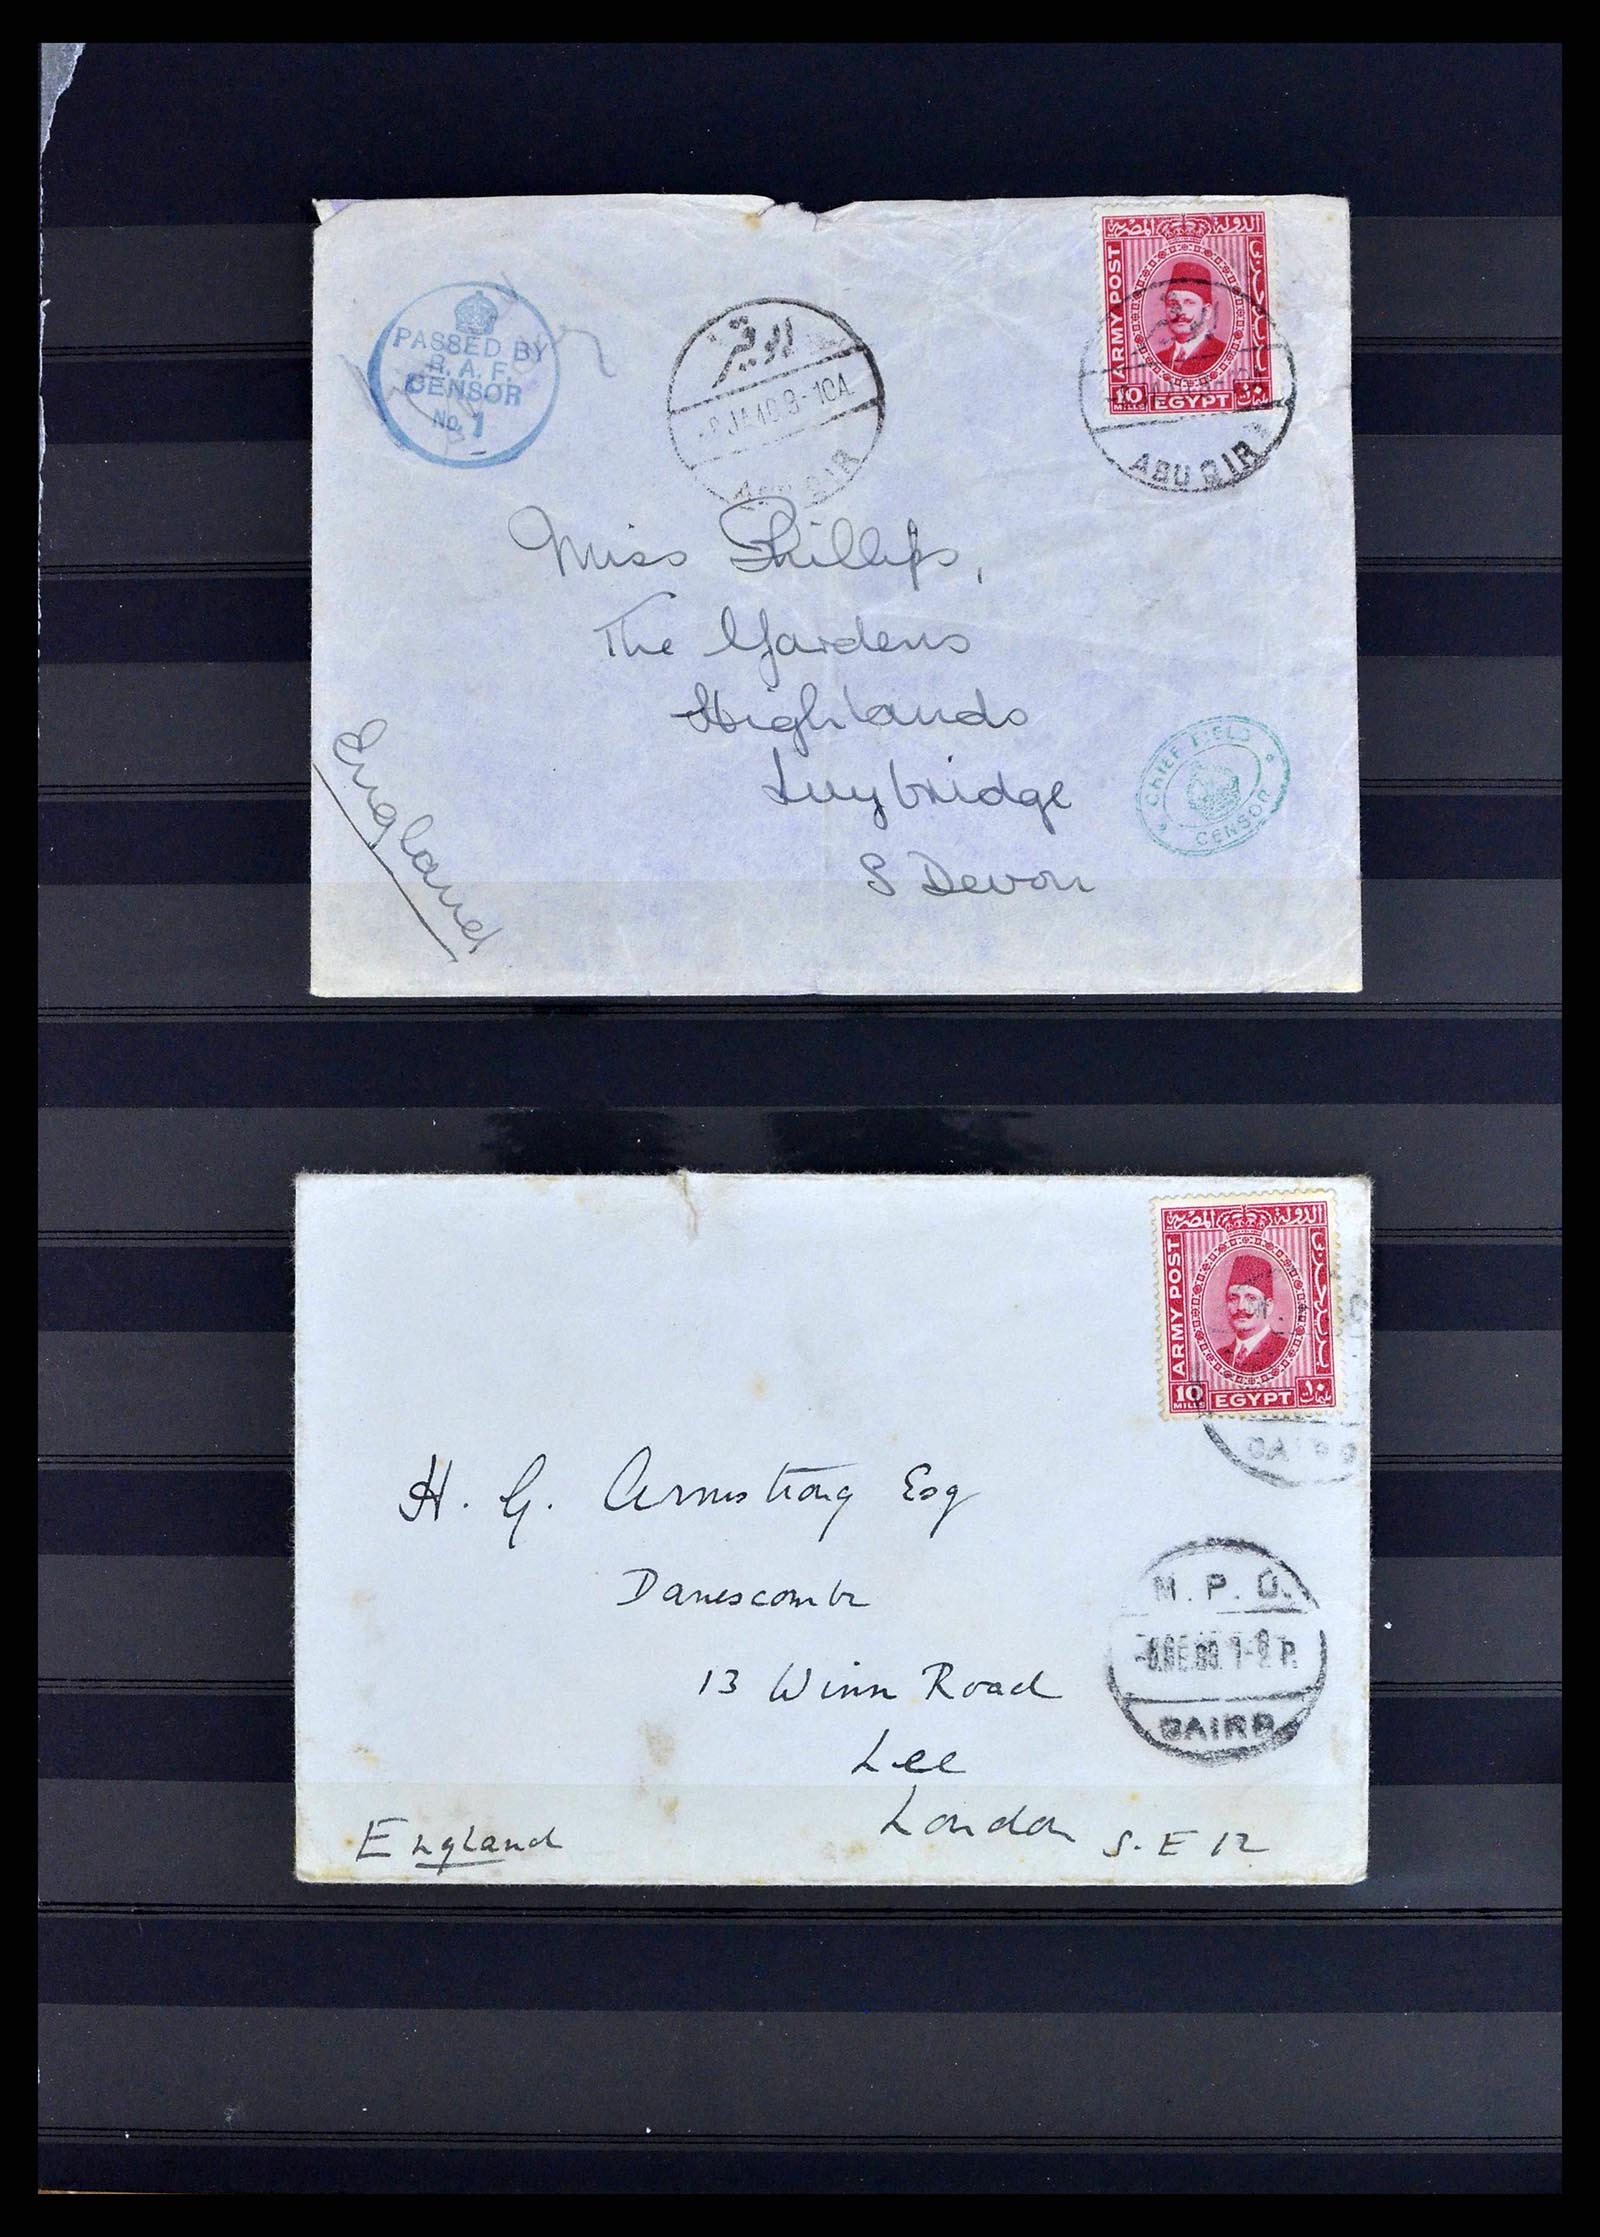 PASSED BY
R. A. F.
CENSOR
No. 1
ابو قير
JA 40 9-10A
ABU QIR
الدولة المصرية
ARMY POST
10
MILLS
EGYPT
ABU QIR
Miss Phillips,
The Gardens
Highlands
Ivybridge
S Devon
England
CHIEF FIELD
CENSOR
الدولة المصرية
ARMY POST
10
MILLS
EGYPT
CAIRO
H. G. Armstrong Esq
Danescombe
13 Winn Road
Lee
London S.E 12
England
M.P.O.
CAIRO